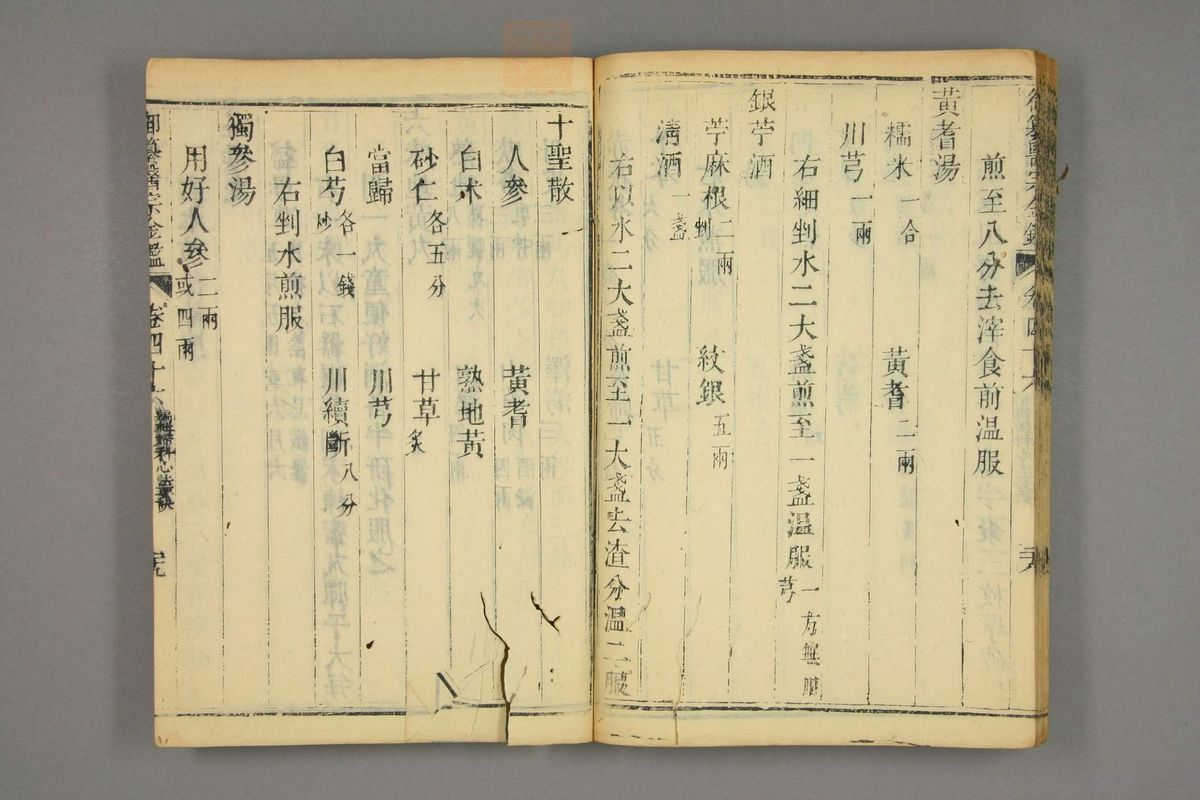 御纂醫宗金鑑 卷四十六
煎至八分去滓食前溫服
黃耆湯
糯米一合 黃耆二兩
川芎一兩
右細剉水二大盞煎至一盞溫服一方無川芎
銀苧酒
苧麻根二兩剉 紋銀五兩
清酒一盞
右以水二大盞煎至一大盞去渣分溫二服
十聖散
人參 黃耆
白朮 熟地黃
砂仁各五分 甘草炙
當歸 川芎
白芍炒各一錢 川續斷八分
右剉水煎服
獨參湯
用好人參二兩或四兩
御纂醫宗金鑑 卷四十六 編輯婦科心法要訣